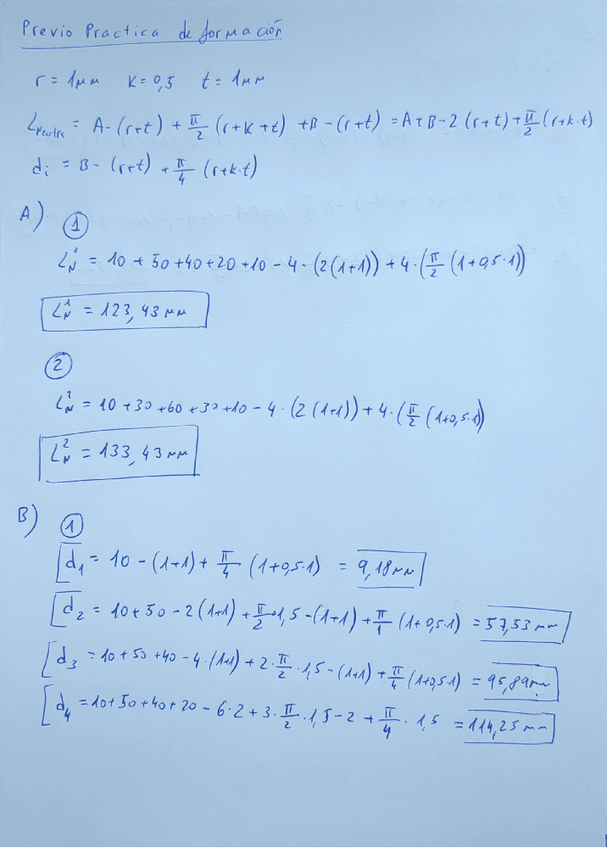 Previo Practica de formación
r = 1mm K = 0,5 t = 1mm
L Neutra = A - (r+t) + π/2 (r + K + t) + B - (r+t) = A + B - 2 (r+t) + π/2 (r+k·t)
di = B - (r+t) + π/4 (r+k·t)
A) ①
L_N^1 = 10 + 50 + 40 + 20 + 10 - 4·(2(1+1)) + 4·(π/2 (1+0,5·1))
L_N^1 = 123,43 mm
②
L_N^2 = 10 + 30 + 60 + 30 + 10 - 4·(2(1+1)) + 4·(π/2 (1+0,5·1)
L_N^2 = 133,43 mm
B) ①
d1 = 10 - (1+1) + π/4 (1+0,5·1) = 9,18 mm
d2 = 10 + 50 - 2(1+1) + π/2·1,5 - (1+1) + π/4 (1+0,5·1) = 57,53 mm
d3 = 10 + 50 + 40 - 4·(1+1) + 2·π/2·1,5 - (1+1) + π/4 (1+0,5·1) = 95,89 mm
d4 = 10 + 50 + 40 + 20 - 6·2 + 3·π/2·1,5 - 2 + π/4·1,5 = 114,25 mm